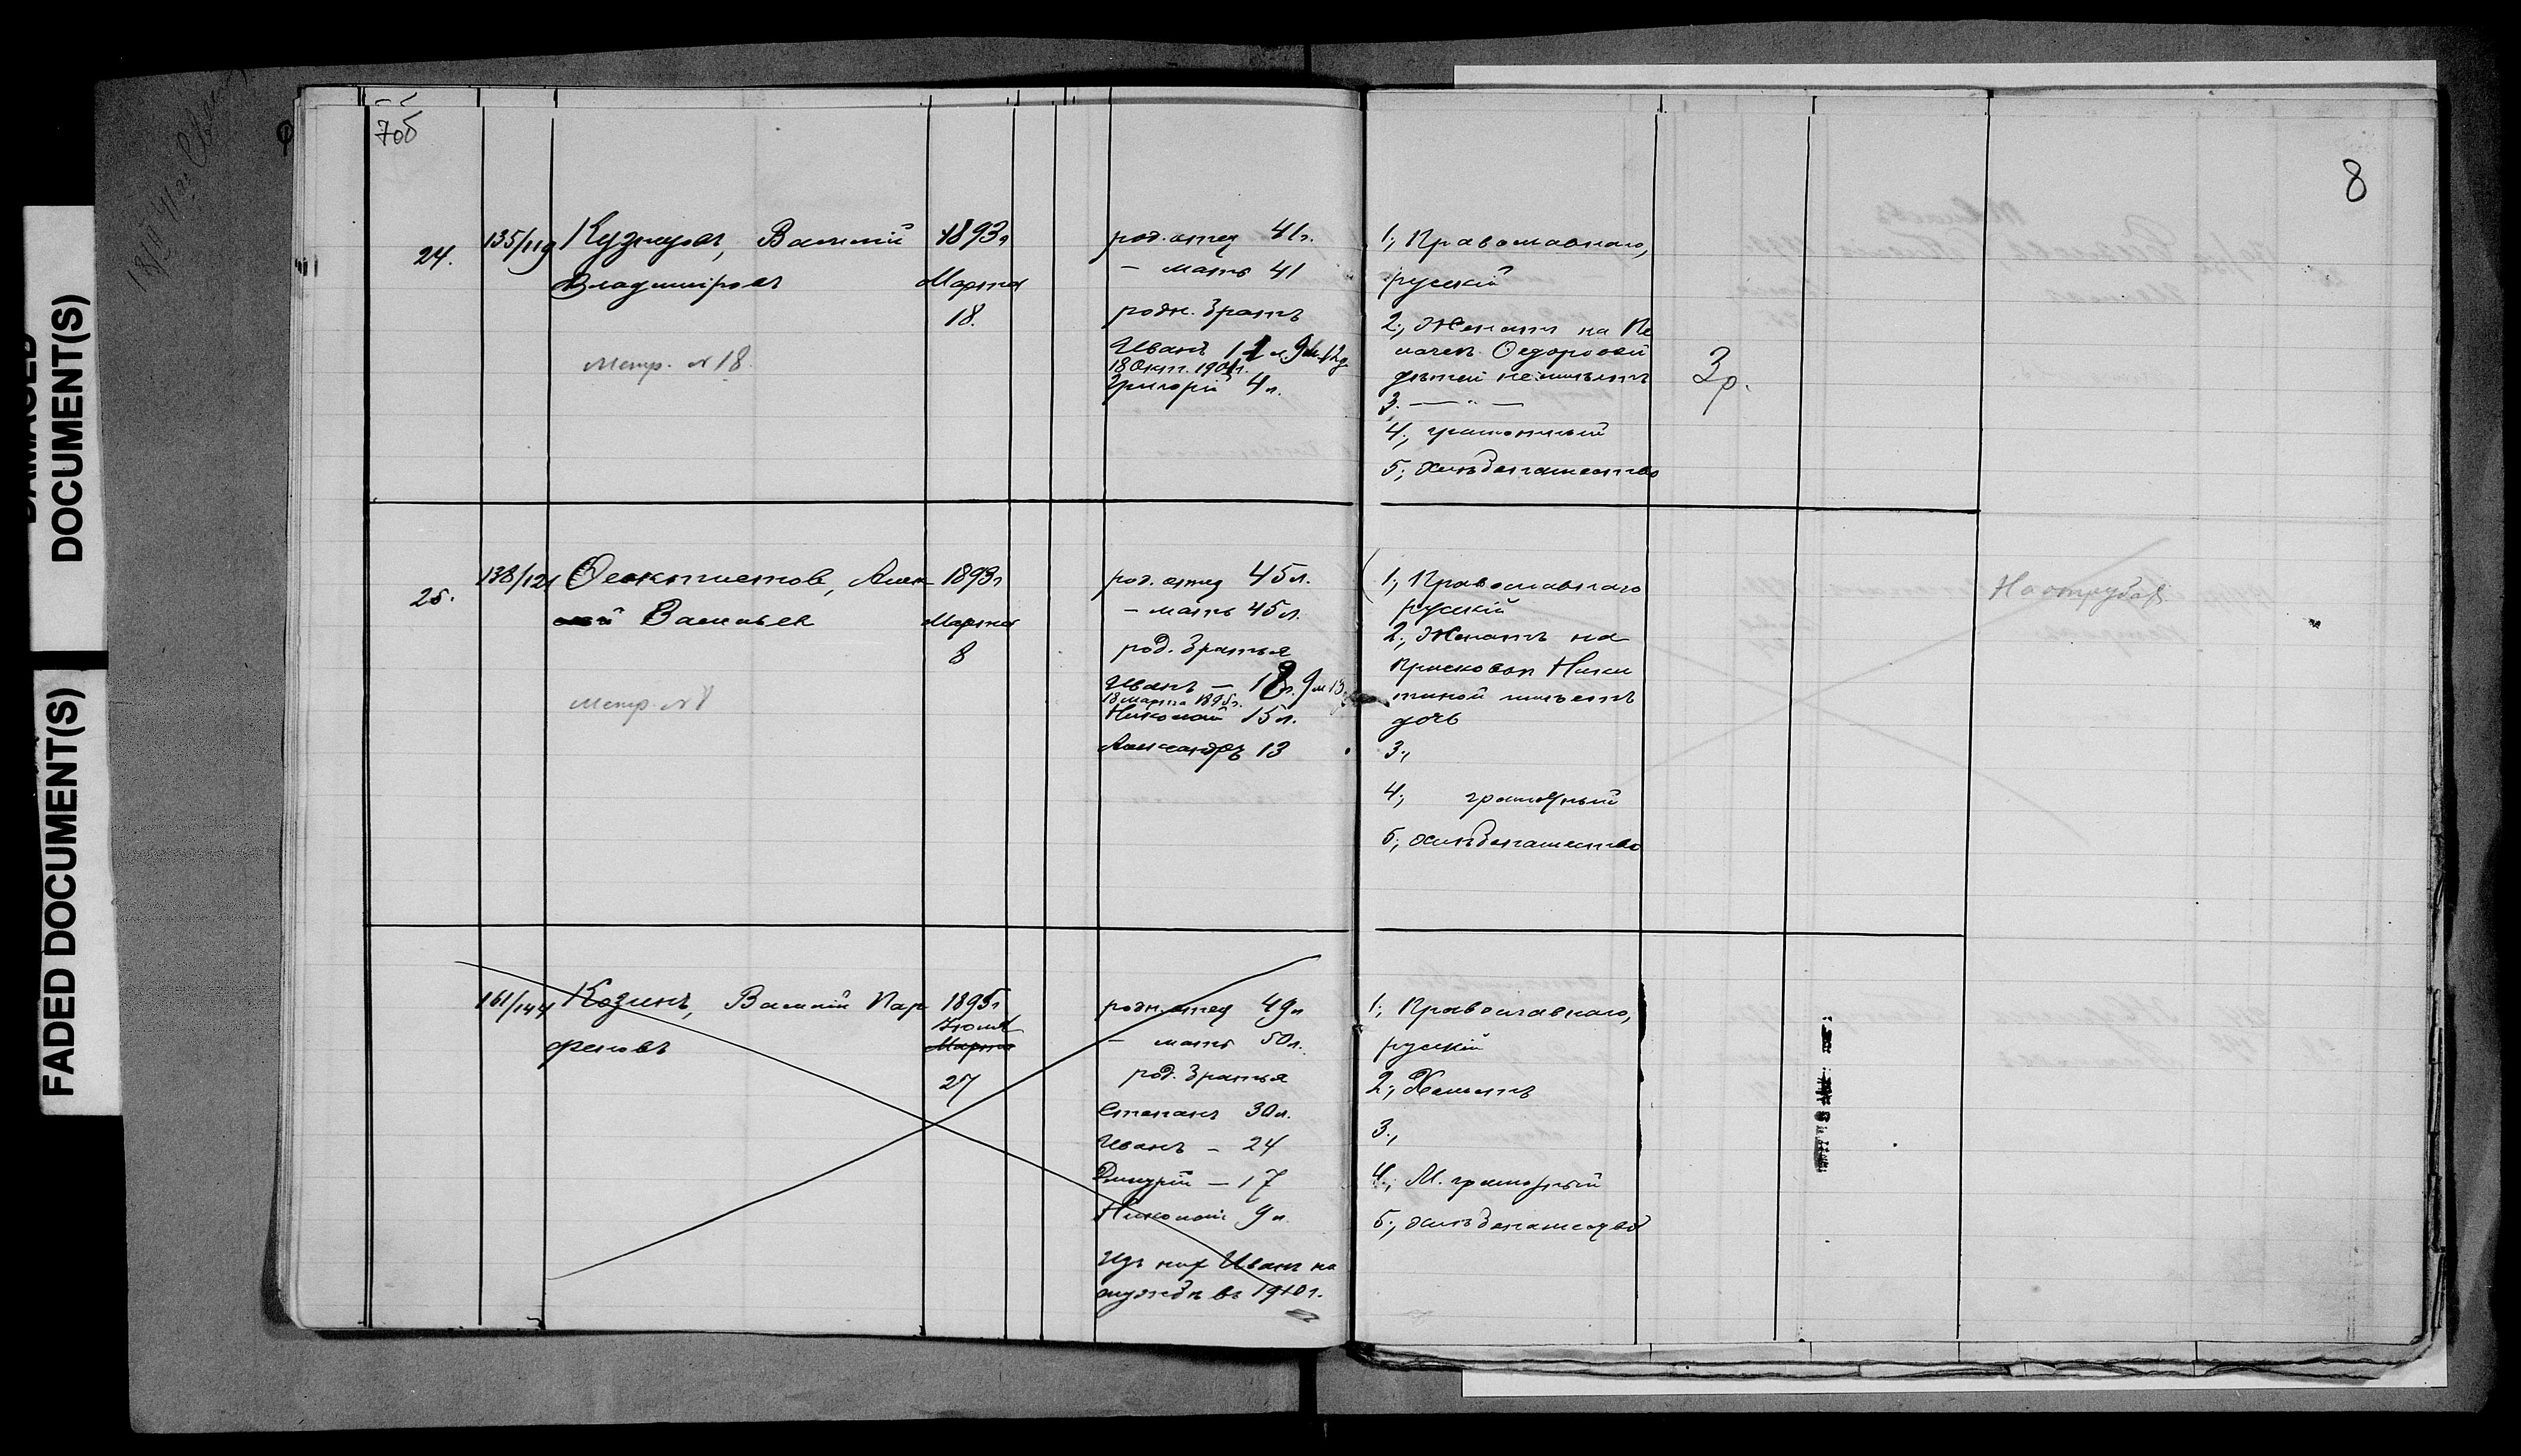 DAMAGED
DOCUMENT(S)
FADED DOCUMENT(S)
7об
8
24.
135/119
Кузнецовъ, Василій
Владиміровъ
Метр. № 18
1893г
Марта
18.
род. отец 41г.
— мать 41
родн. братъ
Иванъ 11 л 9м 12д
18 Окт. 1901г.
Григорій 4 л.
1, Православнаго,
русскій
2, Женатъ на Пе
лагеи Федоровой
дѣтей не имѣетъ
3. — " —
4, грамотный
5, хлѣбопашество
3р.
25.
138/121
Феоктистов, Алек
сѣй Васильев
Метр. № 8
1893г
Марта
8
род. отец 45 л.
— мать 45 л.
род. братья
Иванъ — 18л. 9 м 13
18 марта 1895г.
Николай 15 л.
Александръ 13
1, Православнаго
русскій
2, Женатъ на
Прасковьи Ники
тиной имѣетъ
дочь
3,
4, грамотный
5, хлѣбопашество
На отрубах
161/144
Козинъ, Василій Пар
феновъ
1893г
Іюля
Марта
27
родн. отец 49 л
— мать 50 л.
род. братья
Степанъ 30 л.
Иванъ — 24
Дмитрій — 17
Николай 9 л.
Изъ них Иванъ на
службѣ въ 1910 г.
1, Православнаго,
русскій
2, Холостъ
3,
4, М. грамотный
5, хлѣбопашество